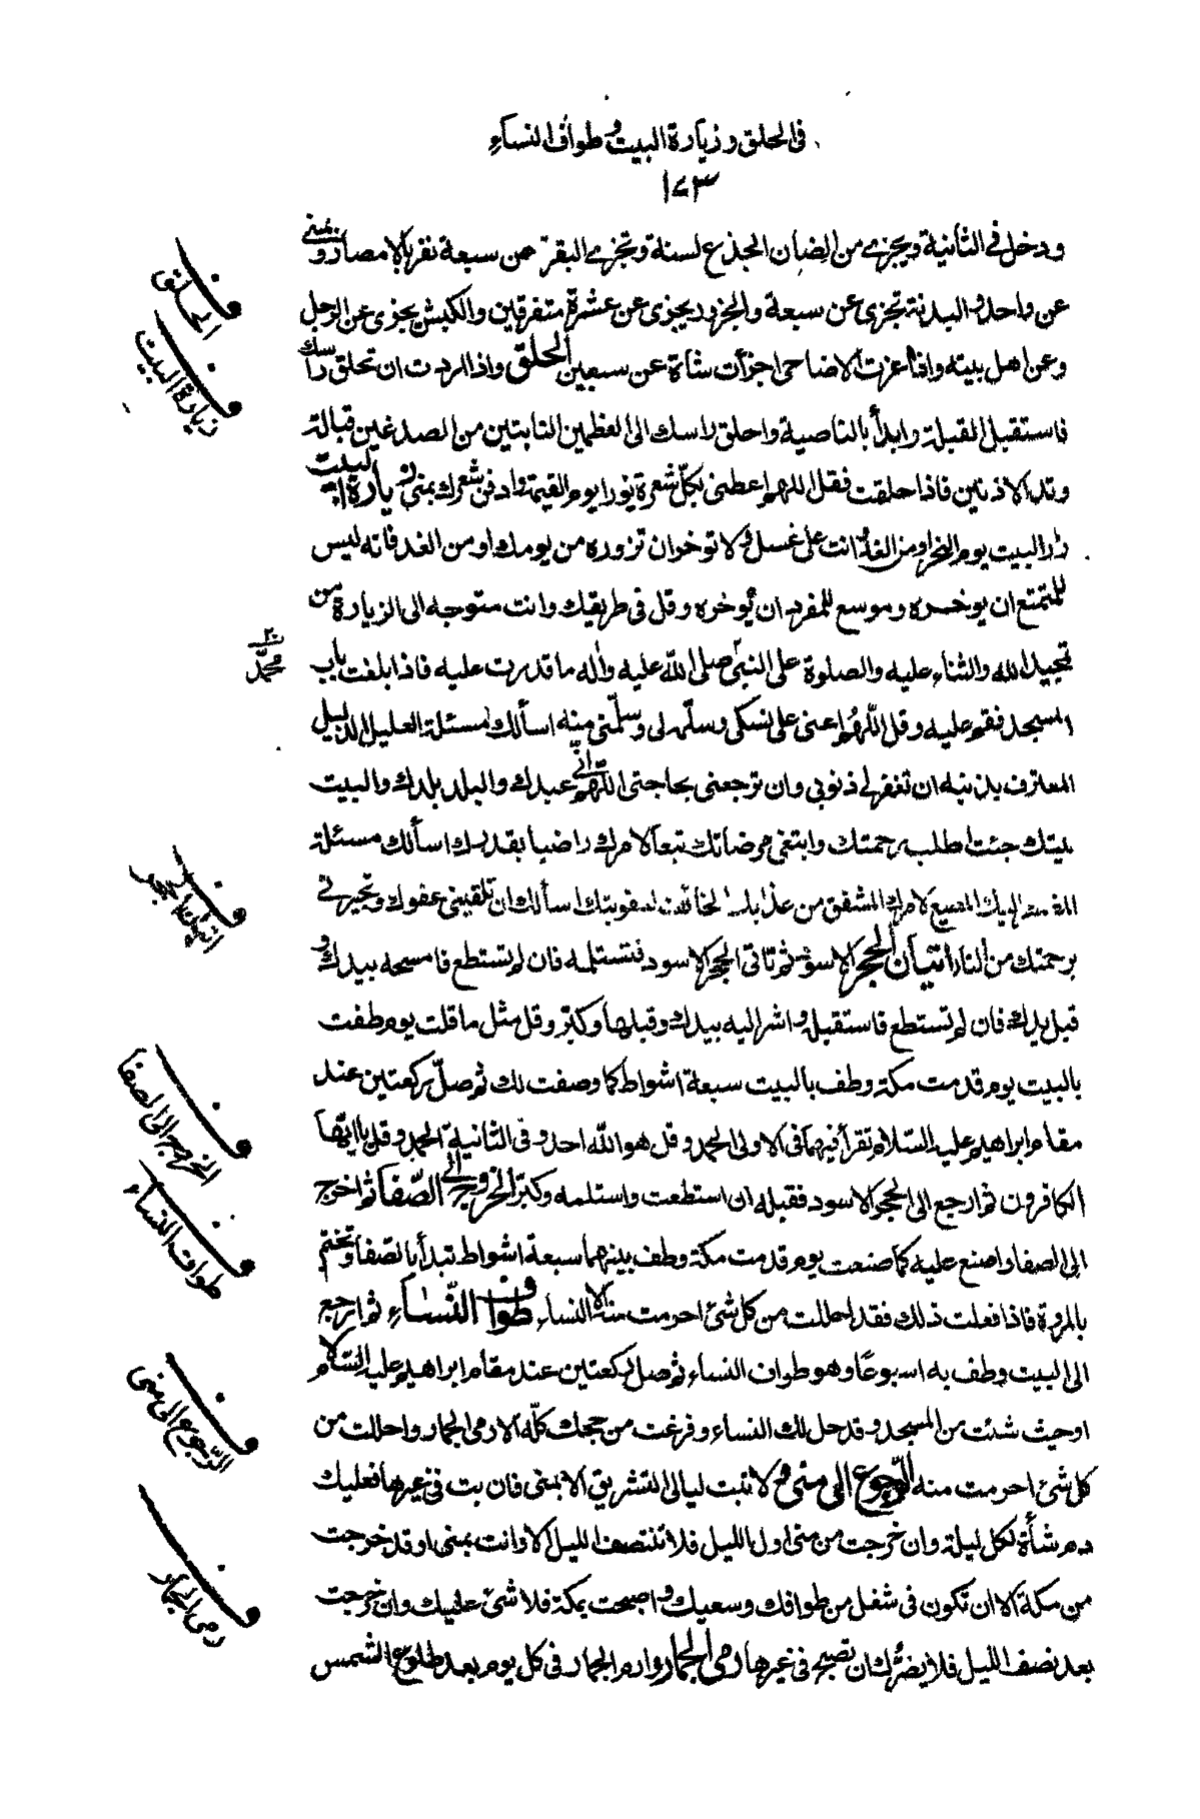 في الحلق و زيارة البيت و طواف النساء
١٧٣
ودخل في الثانية ويجزي من الضان الجذع لسنة وتجزي البقرة عن سبعة نفر بالامصار وبمنى
عن واحد والبدنة تجزي عن سبعة والجزور يجزى عن عشرة متفرقين والكبش يجزى عن الرجل
وعن اهل بيته واذا عزت الاضاحى اجزأت شاة عن سبعين الحلق واذا اردت ان تحلق راسك
فاستقبل القبلة وابدأ بالناصية واحلق راسك الى العظمين النابتين من الصدغين قبالة
وتد الاذنين فاذا حلقت فقل اللهم اعطنى بكل شعرة نورا يوم القيمة وادفن شعرك بمنى زيارة البيت
زر البيت يوم النحر او من الغد وانت على غسل ولا توخر ان تزوره من يومك او من الغد فانه ليس
للمتمتع ان يوخره وموسع للمفرد ان يُوخره وقل في طريقك وانت متوجه الى الزيارة من
تمجيد الله والثناء عليه والصلوة على النبىّ صلى اللّه عليه واله ما قدرت عليه فاذا بلغت باب
محمّد
المسجد فقم عليه وقل اللّهُم اعنى على نسكى وسلّمه لى وسلّمنى منه اسألك مسئلة العليل الذليل
المعترف بذنبه ان تغفر لي ذنوبي وان ترجعنى بحاجتى اللّهم انّي عبدك والبلد بلدك والبيت
بيتك جئت اطلب رحمتك وابتغى مرضاتك تبعاً لامرك راضيا بقدرك اسألك مسئلة
المضطر اليك المطيع لامرك المشفق من عذابك الخائف لعقوبتك اسألك ان تلقيني عفوك وتجيرني
برحمتك من النار اتيان الحجر الاسود ثم تاتى الحجر الاسود فتستلمه فان لم تستطع فامسحه بيدك و
قبل يدك فان لم تستطع فاستقبله واشر اليه بيدك وقبلها وكبّر وقل مثل ما قلت يوم طفت
بالبيت يوم قدمت مكة وطف بالبيت سبعة اشواط كما وصفت لك ثم صلّ ركعتين عند
مقام ابراهيم عليه السّلام تقرأ فيهما في الاولى الحمد وقل هو اللّه احد وفي الثانية الحمد وقل يا ايّها
الكافرون ثم ارجع الى الحجر الاسود فقبله ان استطعت واستلمه وكبّر الخروج الى الصّفا ثم اخرج
الى الصفا واصنع عليه كما صنعت يوم قدمت مكة وطف بينهما سبعة اشواط تبدأ بالصفا وتختم
بالمروة فاذا فعلت ذلك فقد احللت من كل شئ احرمت منه الا النساء طواف النّساء ثم ارجع
الى البيت وطف به اسبوعًا وهو طواف النساء ثم صل ركعتين عند مقام ابراهيم عليه السّلام
او حيث شئت من المسجد وقد حل لك النساء وفرغت من حجك كلّه الا رمى الجمار واحللت من
كل شئ احرمت منه الرّجوع الى منى و لا تبت ليالى التشريق الا بمنى فان بت في غيرها فعليك
دم شاة لكل ليلة وان خرجت من منى اول الليل فلا تنتصف الليل الا وانت بمنى او قد خرجت
من مكة الا ان تكون في شغل من طوافك وسعيك واصبحت بمكة فلا شئ عليك وان خرجت
بعد نصف الليل فلا يضرّك ان تصبح في غيرها رمى الجمار وارم الجمار في كل يوم بعد طلوع الشمس
الحلق
زيارة البيت
اتيان الحجر
الخروج الى الصفا
طواف النساء
الرّجوع الى منى
رمى الجمار